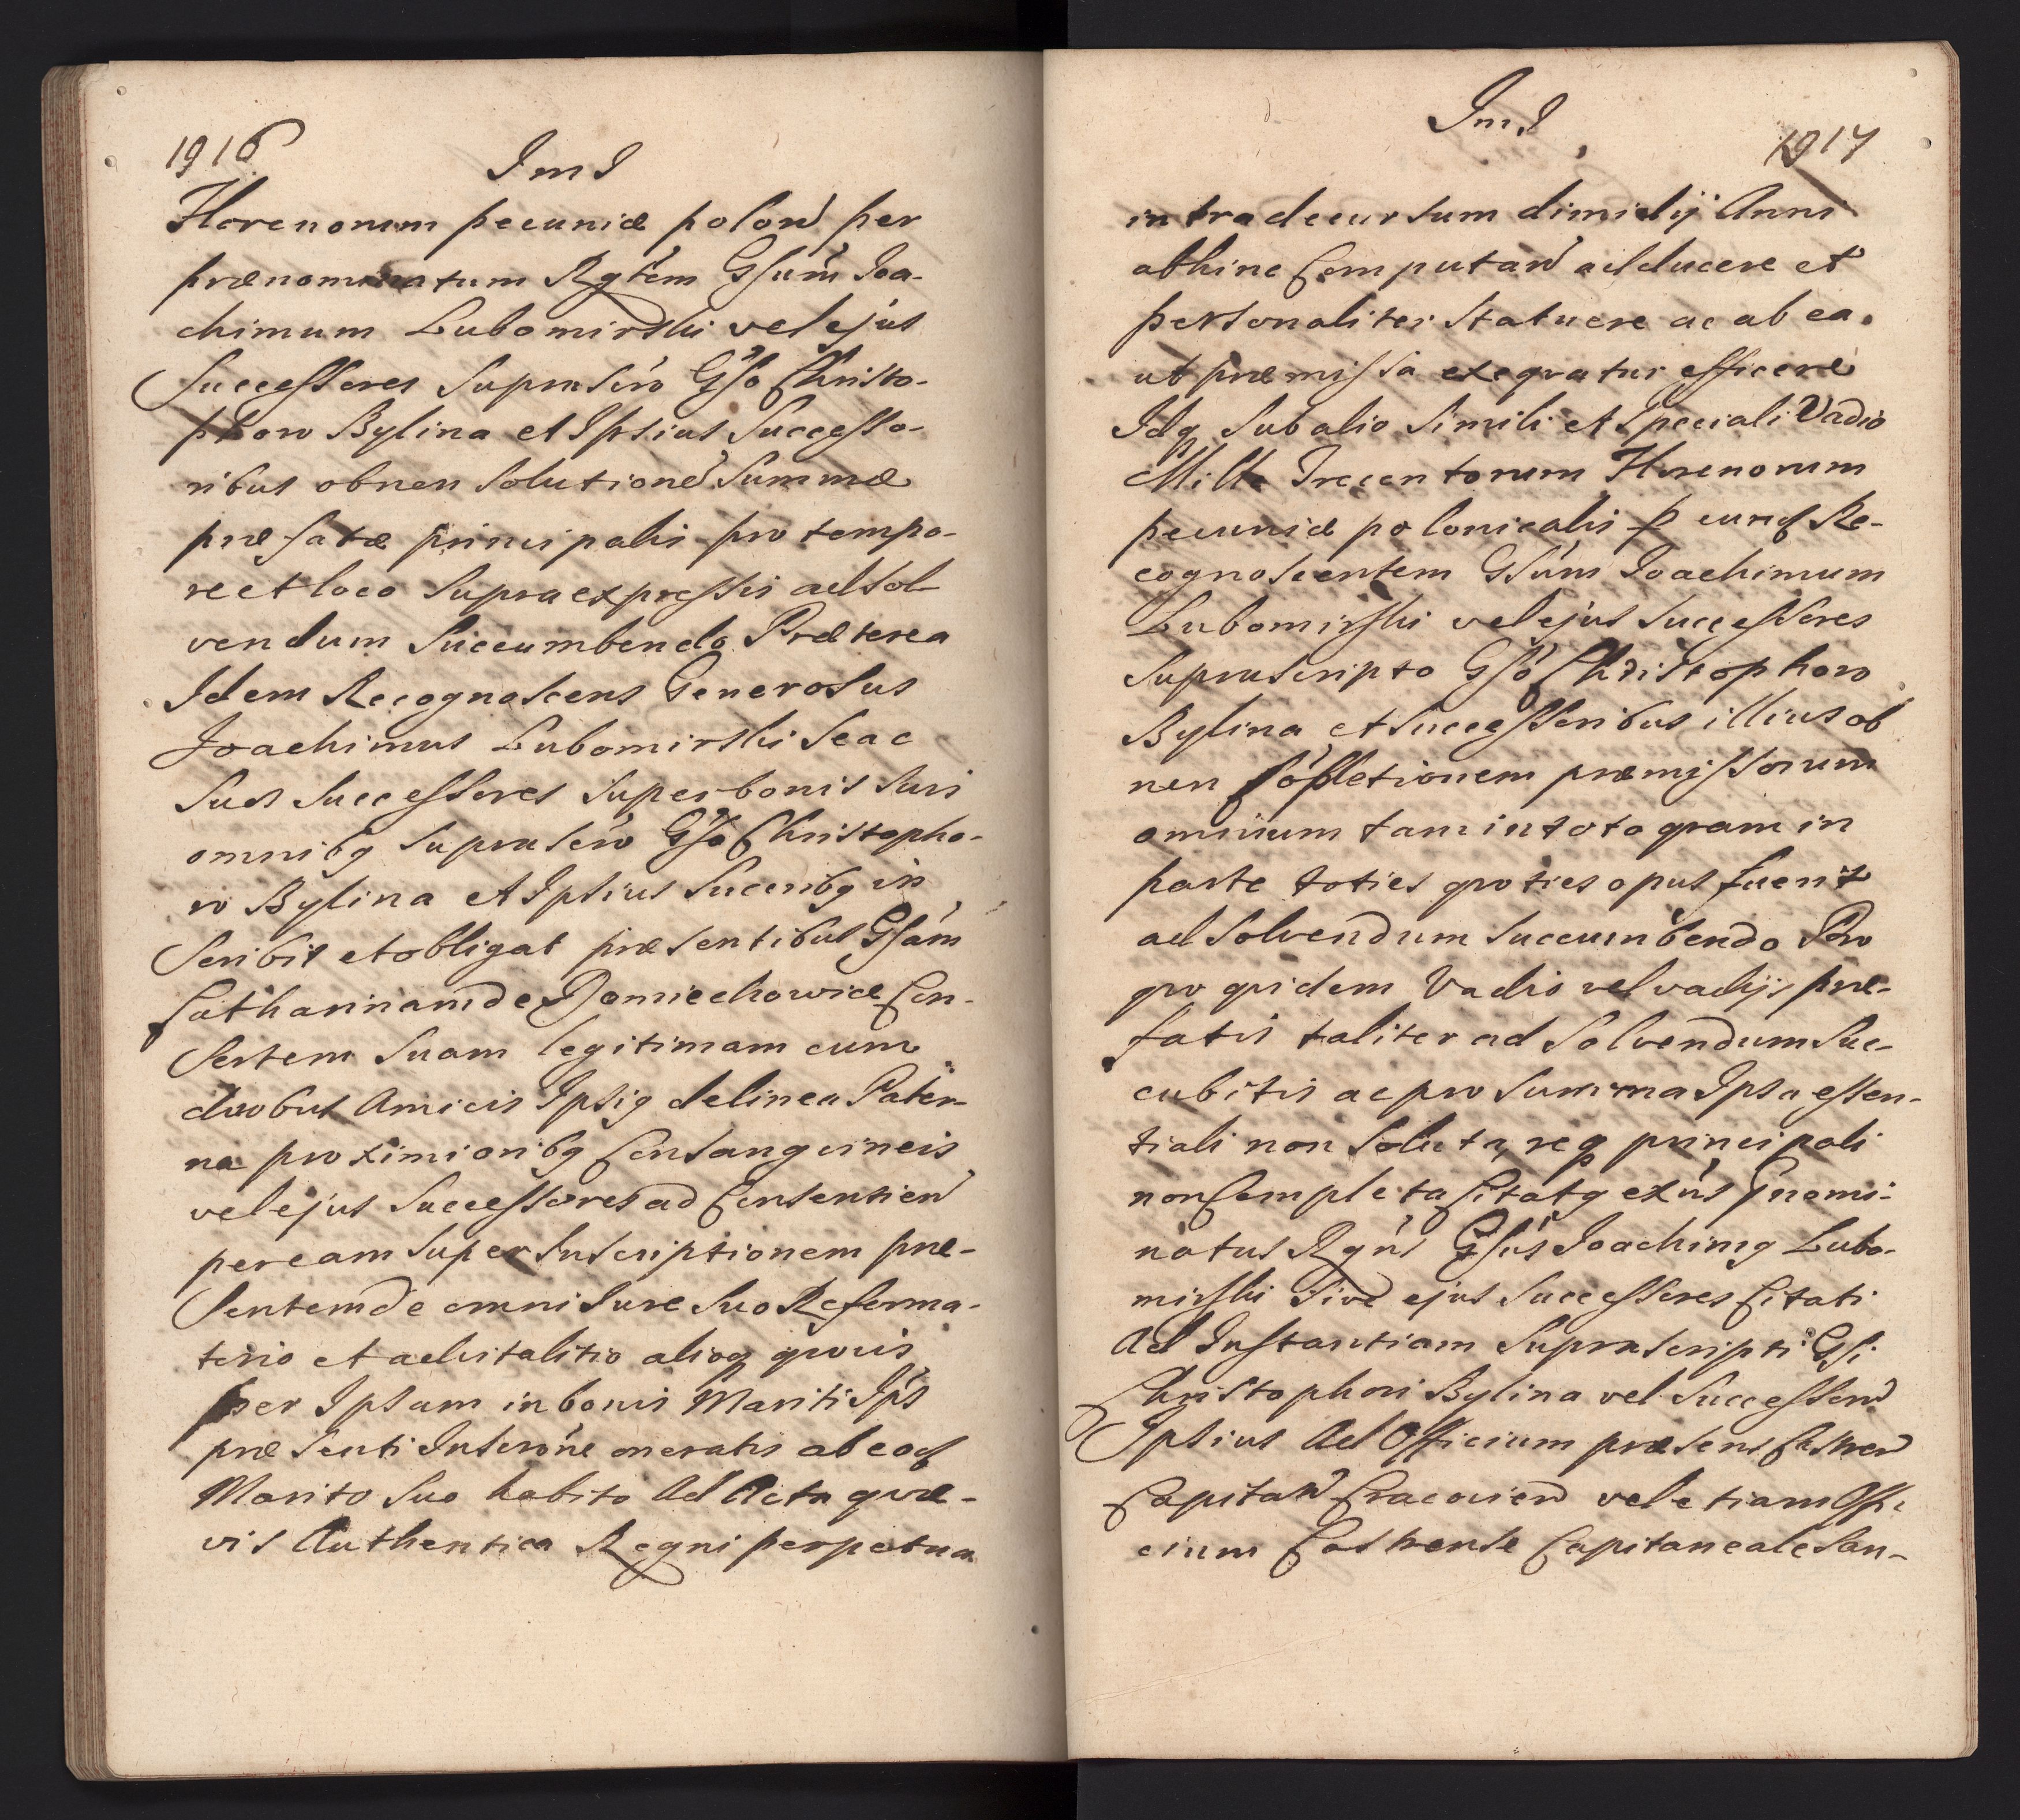 1916
ImI
Florenorum pecuniæ polon per
prænominatum Rgtem Gsum Joa-
chimum Lubomirski vel ejus
Successores Suprascro Gso Christo-
phoro Bylina et Ipsius Successo-
ribus ob non solutione Summæ
præfatæ principalis pro tempo-
re et loco Supra expressis ad sol-
vendum Succumbendo Præterea
Idem Recognoscens Generosus
Joachimus Lubomirski Se ac
Suos Successores Super bonis suis
omnibq Suprascro Gso Christopho-
ro Bylina et Ipsius Succribq in
Scribit et obligat præsentibus Gsam
Catharinam de Domiechowice Con-
sortem Suam legitimam cum
duobus Amicis Ipsiq de linea Pater-
na proximioribq Consangvineis
vel ejus Successores ad Consentien
per eam Super Inscriptionem præ-
sentem de omni Jure Suo Reforma-
torio et advitalitio alioq qvovis
per Ipsam in bonis Mariti Ips
præsenti Inscrone oneratis ab eoq
Marito Suo habito Ad Acta qvæ-
vis Authentica Regni perpetua
ImI
1917
intra decursum dimidij Anni
abhinc Computan adducere et
personaliter Statuere ac ab ea
ut præmissa exeqvatur efficere
Idq Sub alio Simili et Speciali Vadio
Mille Trecentorum Florenorum
pecuniæ polonicalis p eundq Re-
cognoscentem Gsum Joachimum
Lubomirski vel ejus Successores
Suprascripto Gso Christophoro
Bylina et Successoribus illius ob
non Copletionem præmissorum
omnium tam in toto qvam in
parte toties qvoties opus fuerit
ad Solvendum Succumbendo Pro
qvo qvidem Vadio vel vadijs præ-
fatis taliter ad Solvendum Suc-
cubitis ac pro Summa Ipsa essen-
tiali non Soluta, req principali
non Completa Citatq exns Pnomi-
natus Rgns Gsus Joachimq Lubo-
mirski Sive ejus Successores Citati
Ad Instantiam Suprascripti Gsi
Christophori Bylina vel Successorum
Ipsius Ad Officium præsens Castren
Capitan Cracovien vel etiam Offi
cium Castrense Capitaneale San-